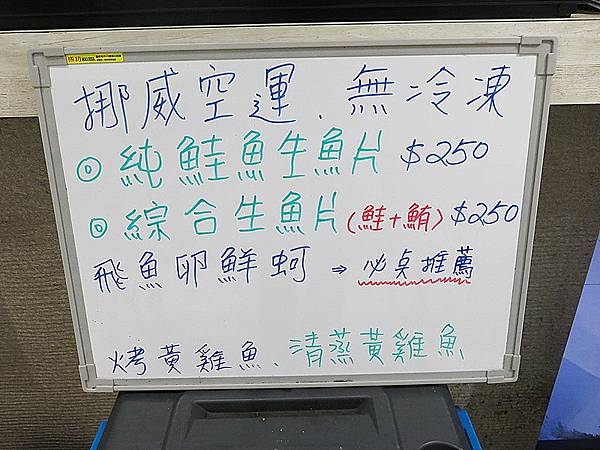 挪威空運.無冷凍
◎純鮭魚生魚片 $250
◎綜合生魚片(鮭+鮪) $250
飛魚卵鮮蚵 → 必桌推薦
烤黃雞魚、清蒸黃雞魚